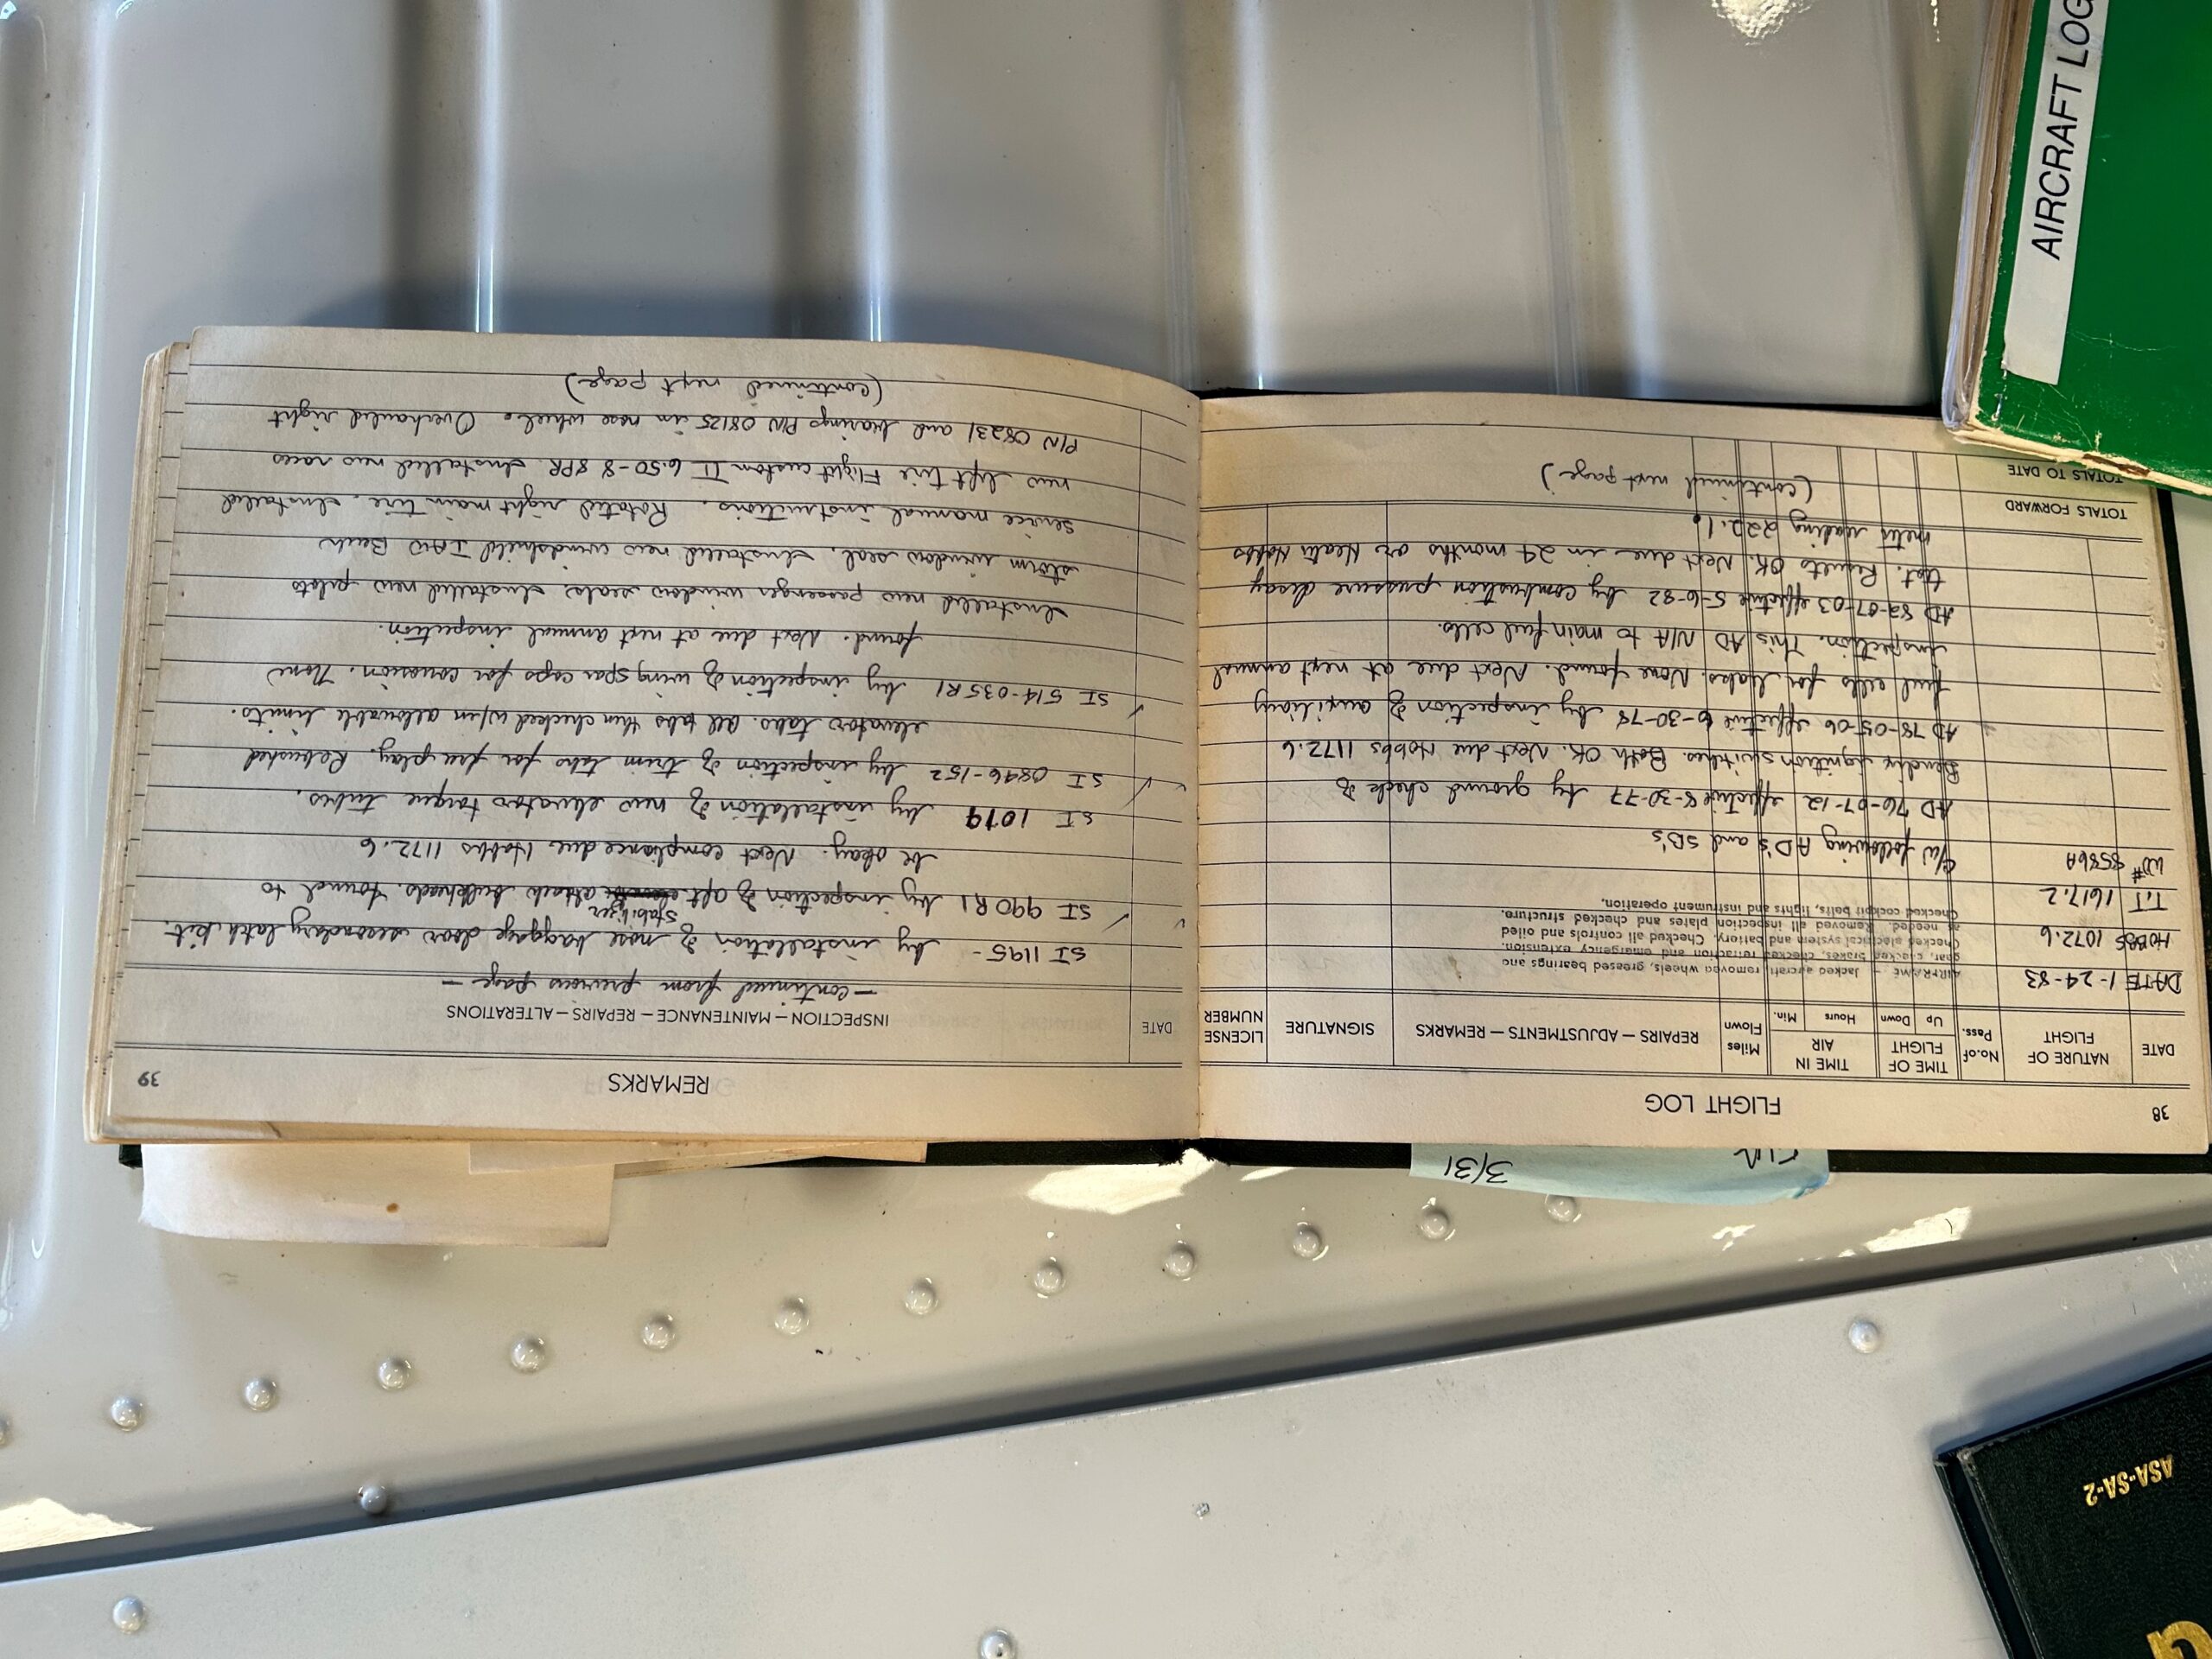 38
FLIGHT LOG
DATE
NATURE OF FLIGHT
No. of Pass.
TIME OF FLIGHT
Up
Down
TIME IN AIR
Hours
Min.
Miles Flown
REPAIRS — ADJUSTMENTS — REMARKS
SIGNATURE
LICENSE NUMBER
DATE 1-24-83
HOBBS 1072.6
T.T 1617.2
WO# 8586A
AIRFRAME - Jacked aircraft, removed wheels, greased bearings and
gear, checked brakes, checked retraction and emergency extension.
Checked electrical system and battery. Checked all controls and oiled
as needed. Removed all inspection plates and checked structure.
Checked cockpit belts, lights and instrument operation.
C/W following AD's and SB's
AD 76-07-12 effective 8-30-77 by ground check of
Bendix ignition switches. Both OK. Next due Hobbs 1172.6
AD 78-05-06 effective 6-30-78 by inspection of auxiliary
fuel cells for leaks. None found. Next due at next annual
inspection. This AD N/A to main fuel cells.
AD 82-07-03 effective 5-6-82 by combustion pressure decay
test. Results OK. Next due in 24 months or Heater Hobbs
meter reading 222.1
(continued next page)
TOTALS FORWARD
TOTALS TO DATE
REMARKS
39
DATE
INSPECTION — MAINTENANCE — REPAIRS — ALTERATIONS
— continued from previous page —
SI 1195 - by installation of nose baggage door secondary latch kit.
stabilizer
SI 990 R1 by inspection of aft attach bulkheads. Found to
be okay. Next compliance due Hobbs 1172.6
SI 1079 by installation of new elevator torque tubes.
SI 0846-152 by inspection of trim tabs for free play. Rebushed
elevator tabs. All tabs then checked w/in allowable limits.
SI 514-035 R1 by inspection of wing spar caps for corrosion. None
found. Next due at next annual inspection.
Installed new passenger window seals. Installed new pilots
storm window seal. Installed new windshield IAW Beech
service manual instructions. Rotated right main tire. Installed
new left tire Flight custom II 6.50-8 8PR. Installed new races
P/N 08231 and bearings P/N 08125 in nose wheel. Overhauled right
(continued next page)
3/31
AIRCRAFT LOG
ASA-SA-2